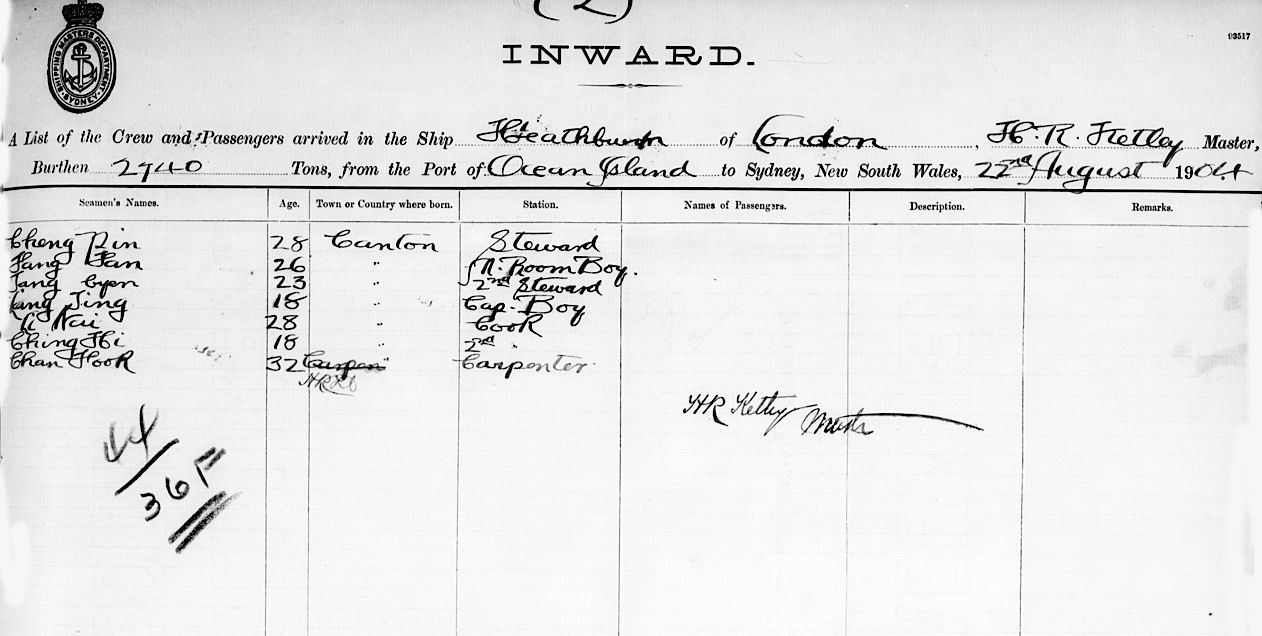 (2)
93517
SHIPPING MASTERS DEPARTMENT SYDNEY
INWARD.
A List of the Crew and Passengers arrived in the Ship Heathburn of London, H. R. Ketley Master,
Burthen 2940 Tons, from the Port of Ocean Island to Sydney, New South Wales, 22nd August 1904
Seamen's Names. Age. Town or Country where born. Station. Names of Passengers. Description. Remarks.
Cheng 28 Canton Steward
Fang Fan 26 " M. Room Boy.
Tang 23 " 2nd Steward
Tang Jing 18 " Cap. Boy
Li Kai 28 " Cook
Ching Hi 18 " 2nd "
Chan Hook 32 Carpenter
HRK
HR Ketley Master
44/36F